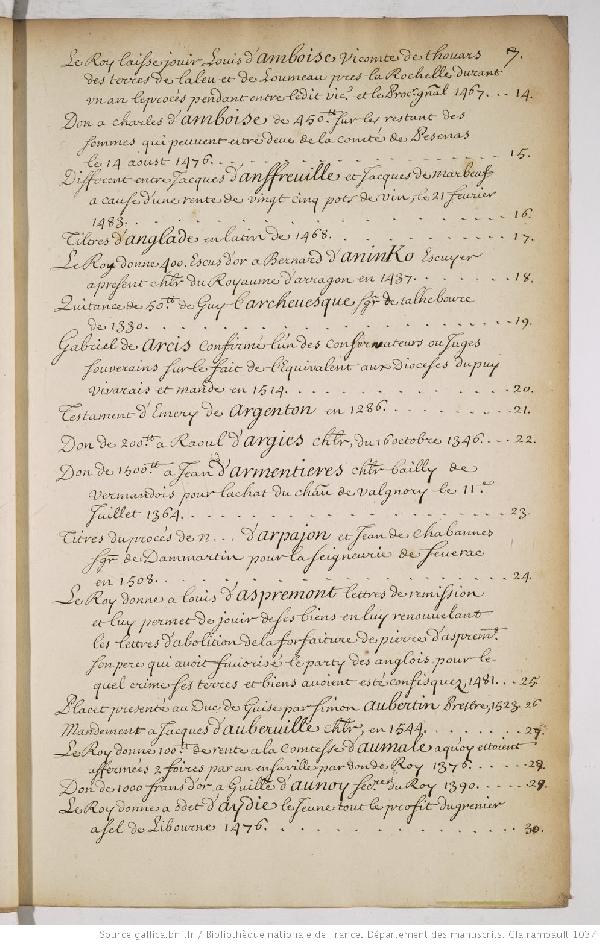 7.
Le Roy laisse jouir Louis d'amboise vicomte de thouars
des terres de laleu et de Loumeau pres la Rochelle durant
un an le procés pendant entre ledit vic.e et le Proc.r gn̄al 1467. . . 14.
Don a charles d'amboise de 450.tt sur les restant des
sommes qui peuvent estre deue de la comté de Pesenas
le 14 aoust 1476. . . . . . . . . . . . . . . 15.
Different entre Jacques d'anffreville et Jacques de marbeuf
a cause d'une rente de vingt cinq pots de vin, le 21 fevrier
1483. . . . . . . . . . . . . . . 16.
Titres d'anglade en latin de 1468. . . . . . . . . 17.
Le Roy donne 400. Escus d'or a Bernard d'aninKo Escuyer
a present chlr du Royaume d'arragon en 1437. . . . . . 18.
Quitance de 50.tt de Guy l'archevesque sgr de talhebourc
de 1330. . . . . . . . . . . . . . . 19.
Gabriel de Arcis confirmé l'un des conservateurs ou Juges
souverains sur le fait de l'equivalent aux dioceses du puy
vivarais et mande en 1514. . . . . . . . . . 20.
Testament d'Emery de Argenton en 1286. . . . . . . 21.
Don de 200.tt a Raoul d'argies chlr, du 16 octobre 1346. . . 22.
Don de 1500.tt a Jean d'armentieres chlr bailly de
vermandois pour lachat du chau de valgnory le 11.e
Juillet 1364. . . . . . . . . . . . . 23.
Titres du procés de n . . . d'arpajon et Jean de Chabannes
sgr de Dammartin pour la seigneurie de severac
en 1508. . . . . . . . . . . . . . . 24.
Le Roy donne a louis d'aspremont lettres de remission
et luy permet de jouir de ses biens en luy renouvelant
les lettres d'abolition de la forfaiture de pierre d'asprem.t
son pere qui avoit favorisé le party des anglois, pour le-
quel crime ses terres et biens avoient esté confisquez, 1481. . . 25.
Placet presenté au Duc de Guise par simon aubertin Prestre, 1523. 26
Mandement a Jacques d'auberville chlr, en 1544. . . . . 27.
Le Roy donne 100.tt de rente a la comtesse d'aumale aquoy estoient
affermées 2 foires par an en saville par don de Roy 1376. . . . 28.
Don de 1000 frans d'or a Guill.e d'aunoy sec.re du Roy 1390. . . . 29.
Le Roy donne a Odet d'aydie le Jeune tout le profit du grenier
a sel de Libourne 1476. . . . . . . . . . . . 30.
Source gallica.bnf.fr / Bibliothèque nationale de France. Département des manuscrits. Clairambault 1037